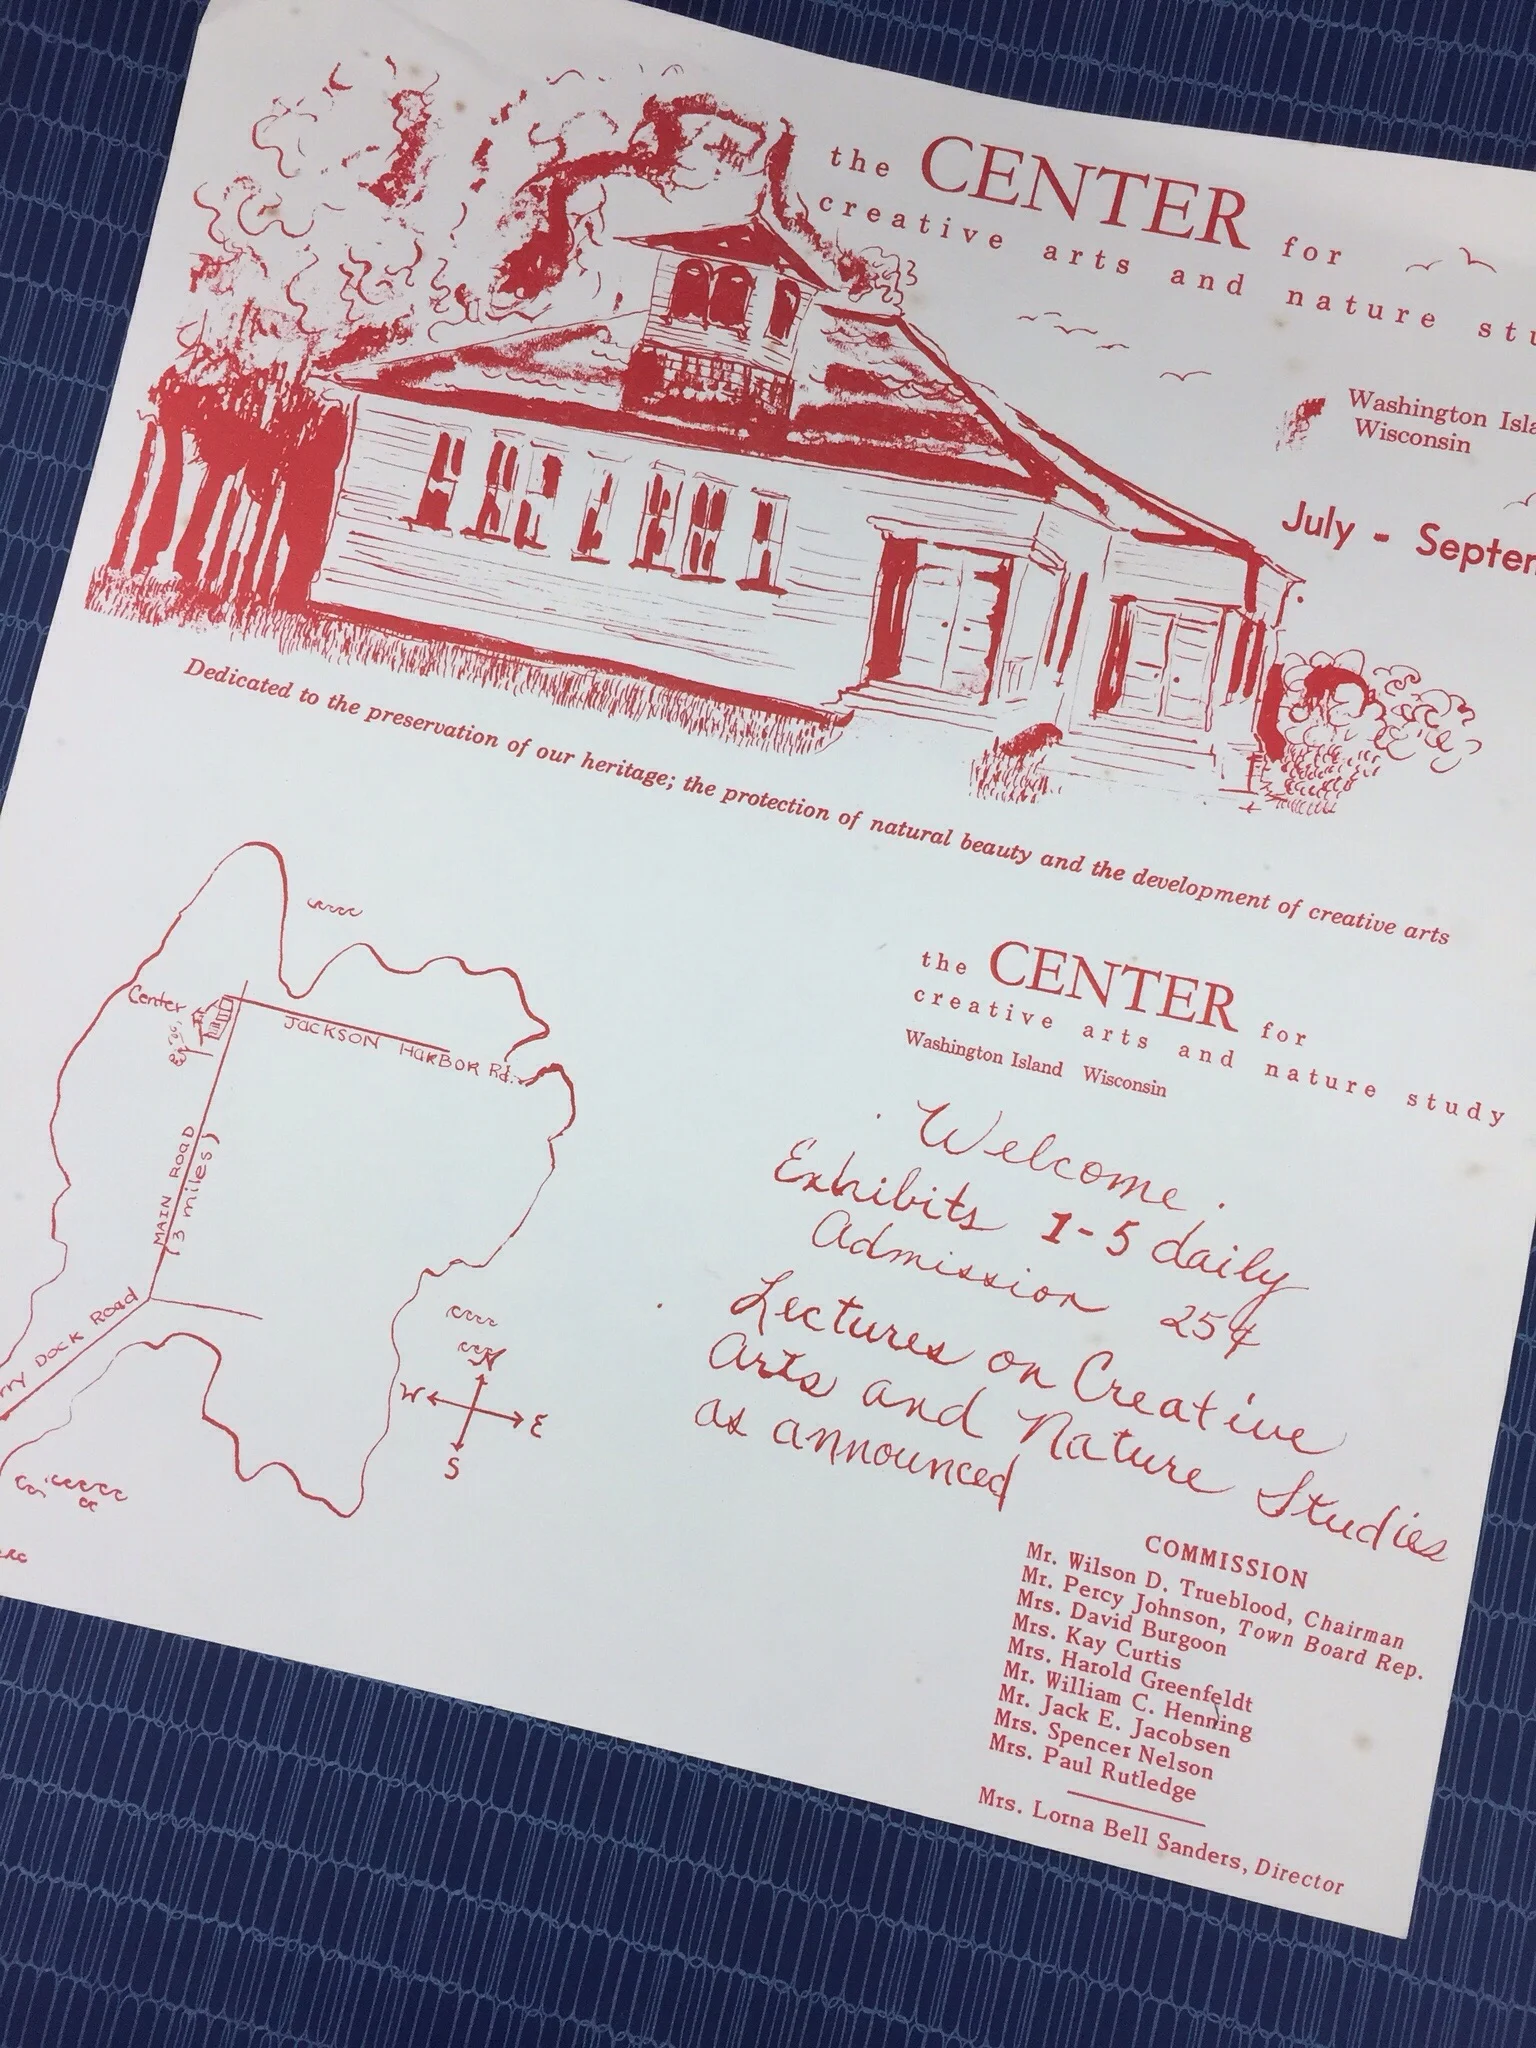 the CENTER for
creative arts and nature
Washington
Wisconsin
July -
Dedicated to the preservation of our heritage; the protection of natural beauty and the development of creative arts
Center
JACKSON HARBOR Rd.
MAIN ROAD
(3 miles)
DOCK ROAD
N
W E
S
the CENTER for
creative arts and nature study
Washington Island Wisconsin
Welcome.
Exhibits 1-5 daily
Admission 25¢
Lectures on Creative
Arts and Nature Studies
as announced
COMMISSION
Mr. Wilson D. Trueblood, Chairman
Mr. Percy Johnson, Town Board Rep.
Mrs. David Burgoon
Mrs. Kay Curtis
Mrs. Harold Greenfeldt
Mr. William C. Henning
Mr. Jack E. Jacobsen
Mrs. Spencer Nelson
Mrs. Paul Rutledge
Mrs. Lorna Bell Sanders, Director